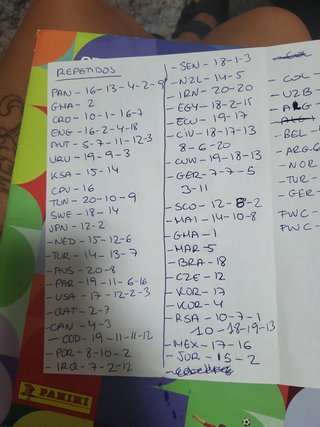 REPETIDOS
PAN - 16-13-4-2-9
GHA - 2
CRO - 10-1-16-7
ENG - 16-2-4-18
AUT - 5-7-11-12-3
URU - 19-9-3
KSA - 15-14
CPV - 16
TUN - 20-10-9
SWE - 18-14
JPN - 12-2
- NED - 15-12-6
- TUR - 14-13-7
- AUS - 20-8
- PAR - 19-11-6-16
- USA - 17-12-2-3
- QAT - 2-7
- CAN - 4-3
- COD - 19-11-11-12
- POR - 8-10-2
- IRQ - 7-2-12
- SEN - 18-1-3
- NZL - 14-5
- IRN - 20-20
- EGY - 18-2-15
- ECU - 19-17
- CIV - 18-17-13
8-6-20
- CUW - 19-18-13
- GER - 7-7-5
3-11
- SCO - 12-8-2
- MAI - 14-10-8
- GHA - 1
- MAR - 5
- BRA - 18
- CZE - 12
- KOR - 17
- KOR - 4
- RSA - 10-7-1
10-18-19-13
- MEX - 17-16
- JOR - 15-2
- COL -
- UZB -
- ALG
- BEL -
- ARG -
- NOR
- TUR -
- GER -
FWC -
FWC -
PANINI